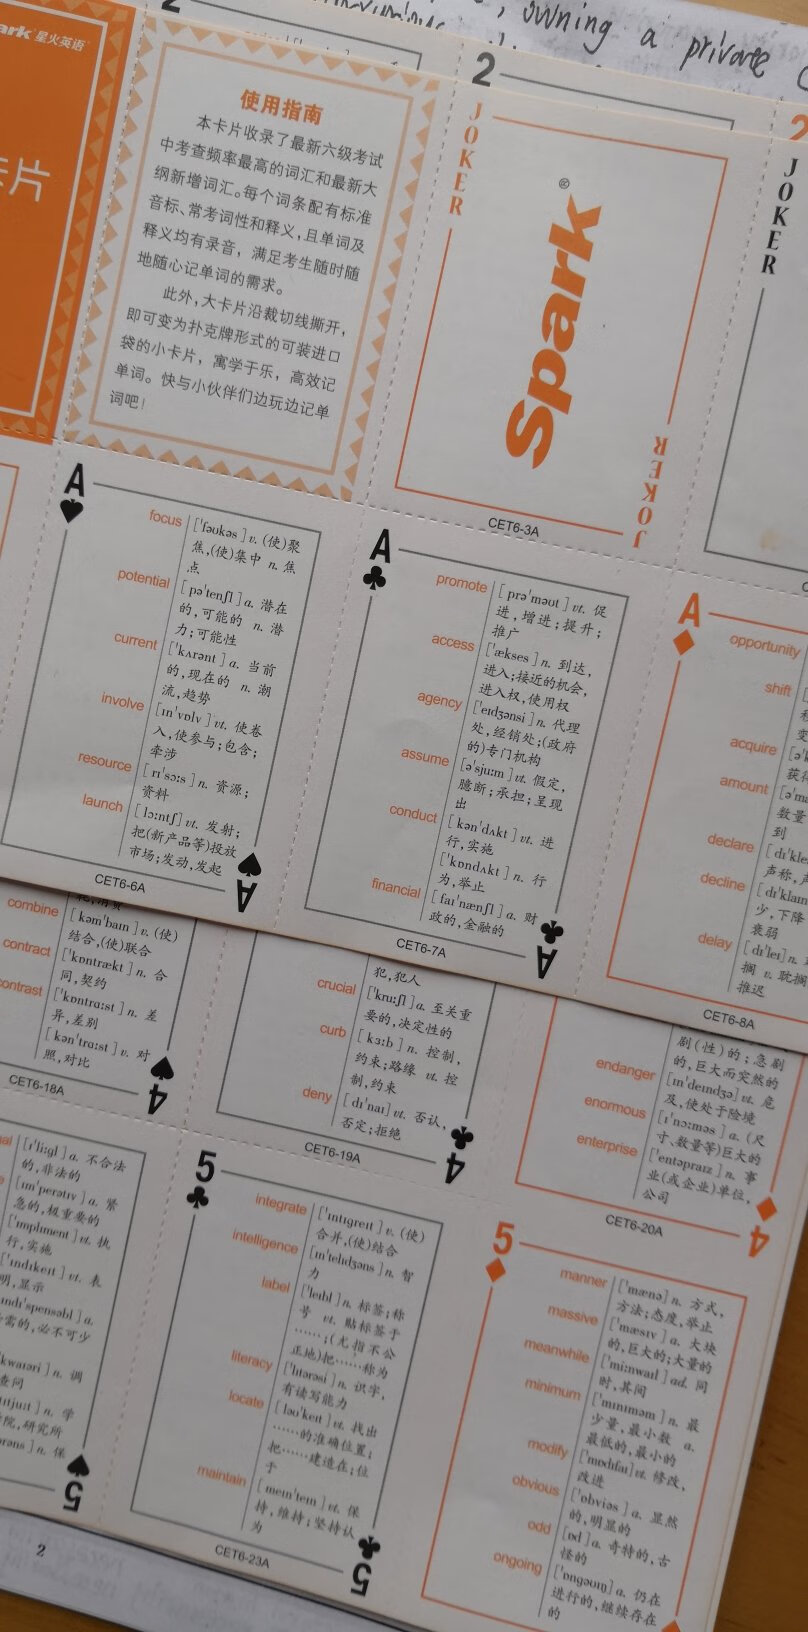 owning a private
ark 星火英语
卡片
使用指南
本卡片收录了最新六级考试
中考查频率最高的词汇和最新大
纲新增词汇。每个词条配有标准
音标、常考词性和释义,且单词及
释义均有录音，满足考生随时随
地随心记单词的需求。
此外,大卡片沿裁切线撕开，
即可变为扑克牌形式的可装进口
袋的小卡片，寓学于乐，高效记
单词。快与小伙伴们边玩边记单
词吧!
2
JOKER
Spark®
JOKER
CET6-3A
2
JOKER
A
focus ['fəʊkəs] v. (使)聚
焦,(使)集中 n. 焦
点
potential [pə'tenʃl] a. 潜在
的,可能的 n. 潜
力;可能性
current ['kʌrənt] a. 当前
的,现在的 n. 潮
流,趋势
involve [ɪn'vɒlv] vt. 使卷
入,使参与;包含;
牵涉
resource [rɪ'sɔːs] n. 资源;
资料
launch [lɔːntʃ] vt. 发射;
把(新产品等)投放
市场;发动,发起
A
CET6-6A
A
promote [prə'məʊt] vt. 促
进,增进;提升;
推广
access ['ækses] n. 到达,
进入;接近的机会,
进入权,使用权
agency ['eɪdʒənsi] n. 代理
处,经销处;(政府
的)专门机构
assume [ə'sjuːm] vt. 假定,
臆断;承担;呈现
出
conduct [kən'dʌkt] vt. 进
行,实施
['kɒndʌkt] n. 行
为,举止
financial [faɪ'nænʃl] a. 财
政的,金融的
A
CET6-7A
A
opportunity
shift
acquire
获得
amount
数量
到
declare
声称,
decline
少,下降
衰弱
delay [dɪ'leɪ] n.
搁 v. 耽搁
推迟
CET6-8A
combine [kəm'baɪn] v. (使)
结合,(使)联合
contract ['kɒntrækt] n. 合
同,契约
contrast ['kɒntrɑːst] n. 差
异,差别
[kən'trɑːst] v. 对
照,对比
4
CET6-18A
犯,犯人
crucial ['kruːʃl] a. 至关重
要的,决定性的
curb [kɜːb] n. 控制,
约束;路缘 vt. 控
制,约束
deny [dɪ'naɪ] vt. 否认,
否定;拒绝
4
CET6-19A
剧(性)的;急剧
的,巨大而突然的
endanger [ɪn'deɪndʒə] vt. 危
及,使处于险境
enormous [ɪ'nɔːməs] a. (尺
寸、数量等)巨大的
enterprise ['entəpraɪz] n. 事
业(或企业)单位,
公司
4
CET6-20A
['ɪliːgl] a. 不合法
的,非法的
[ɪm'perətɪv] a. 紧
急的,极重要的
['ɪmplɪment] vt. 执
行,实施
['ɪndɪkeɪt] vt. 表
明,显示
[ˌɪndɪ'spensəbl] a.
需的,必不可少
n. 调
查问
n. 学
院,研究所
n. 保
5
5
integrate ['ɪntɪgreɪt] v. (使)
合并,(使)结合
intelligence [ɪn'telɪdʒəns] n. 智
力
label ['leɪbl] n. 标签;称
号 vt. 贴标签于
……;(尤指不公
正地)把……称为
literacy ['lɪtərəsi] n. 识字,
有读写能力
locate [ləʊ'keɪt] vt. 找出
……的准确位置;
把……建造在;位
于
maintain [meɪn'teɪn] vt. 保
持,维持;坚持认
为
5
CET6-23A
5
manner ['mænə] n. 方式,
方法;态度,举止
massive ['mæsɪv] a. 大块
的,巨大的;大量的
meanwhile ['miːnwaɪl] ad. 同
时,其间
minimum ['mɪnɪməm] n. 最
少量,最小数 a.
最低的,最小的
modify ['mɒdɪfaɪ] vt. 修改,
改进
obvious ['ɒbviəs] a. 显然
的,明显的
odd [ɒd] a. 奇特的,古
怪的
ongoing ['ɒngəʊɪŋ] a. 仍在
进行的,继续存在
的
2